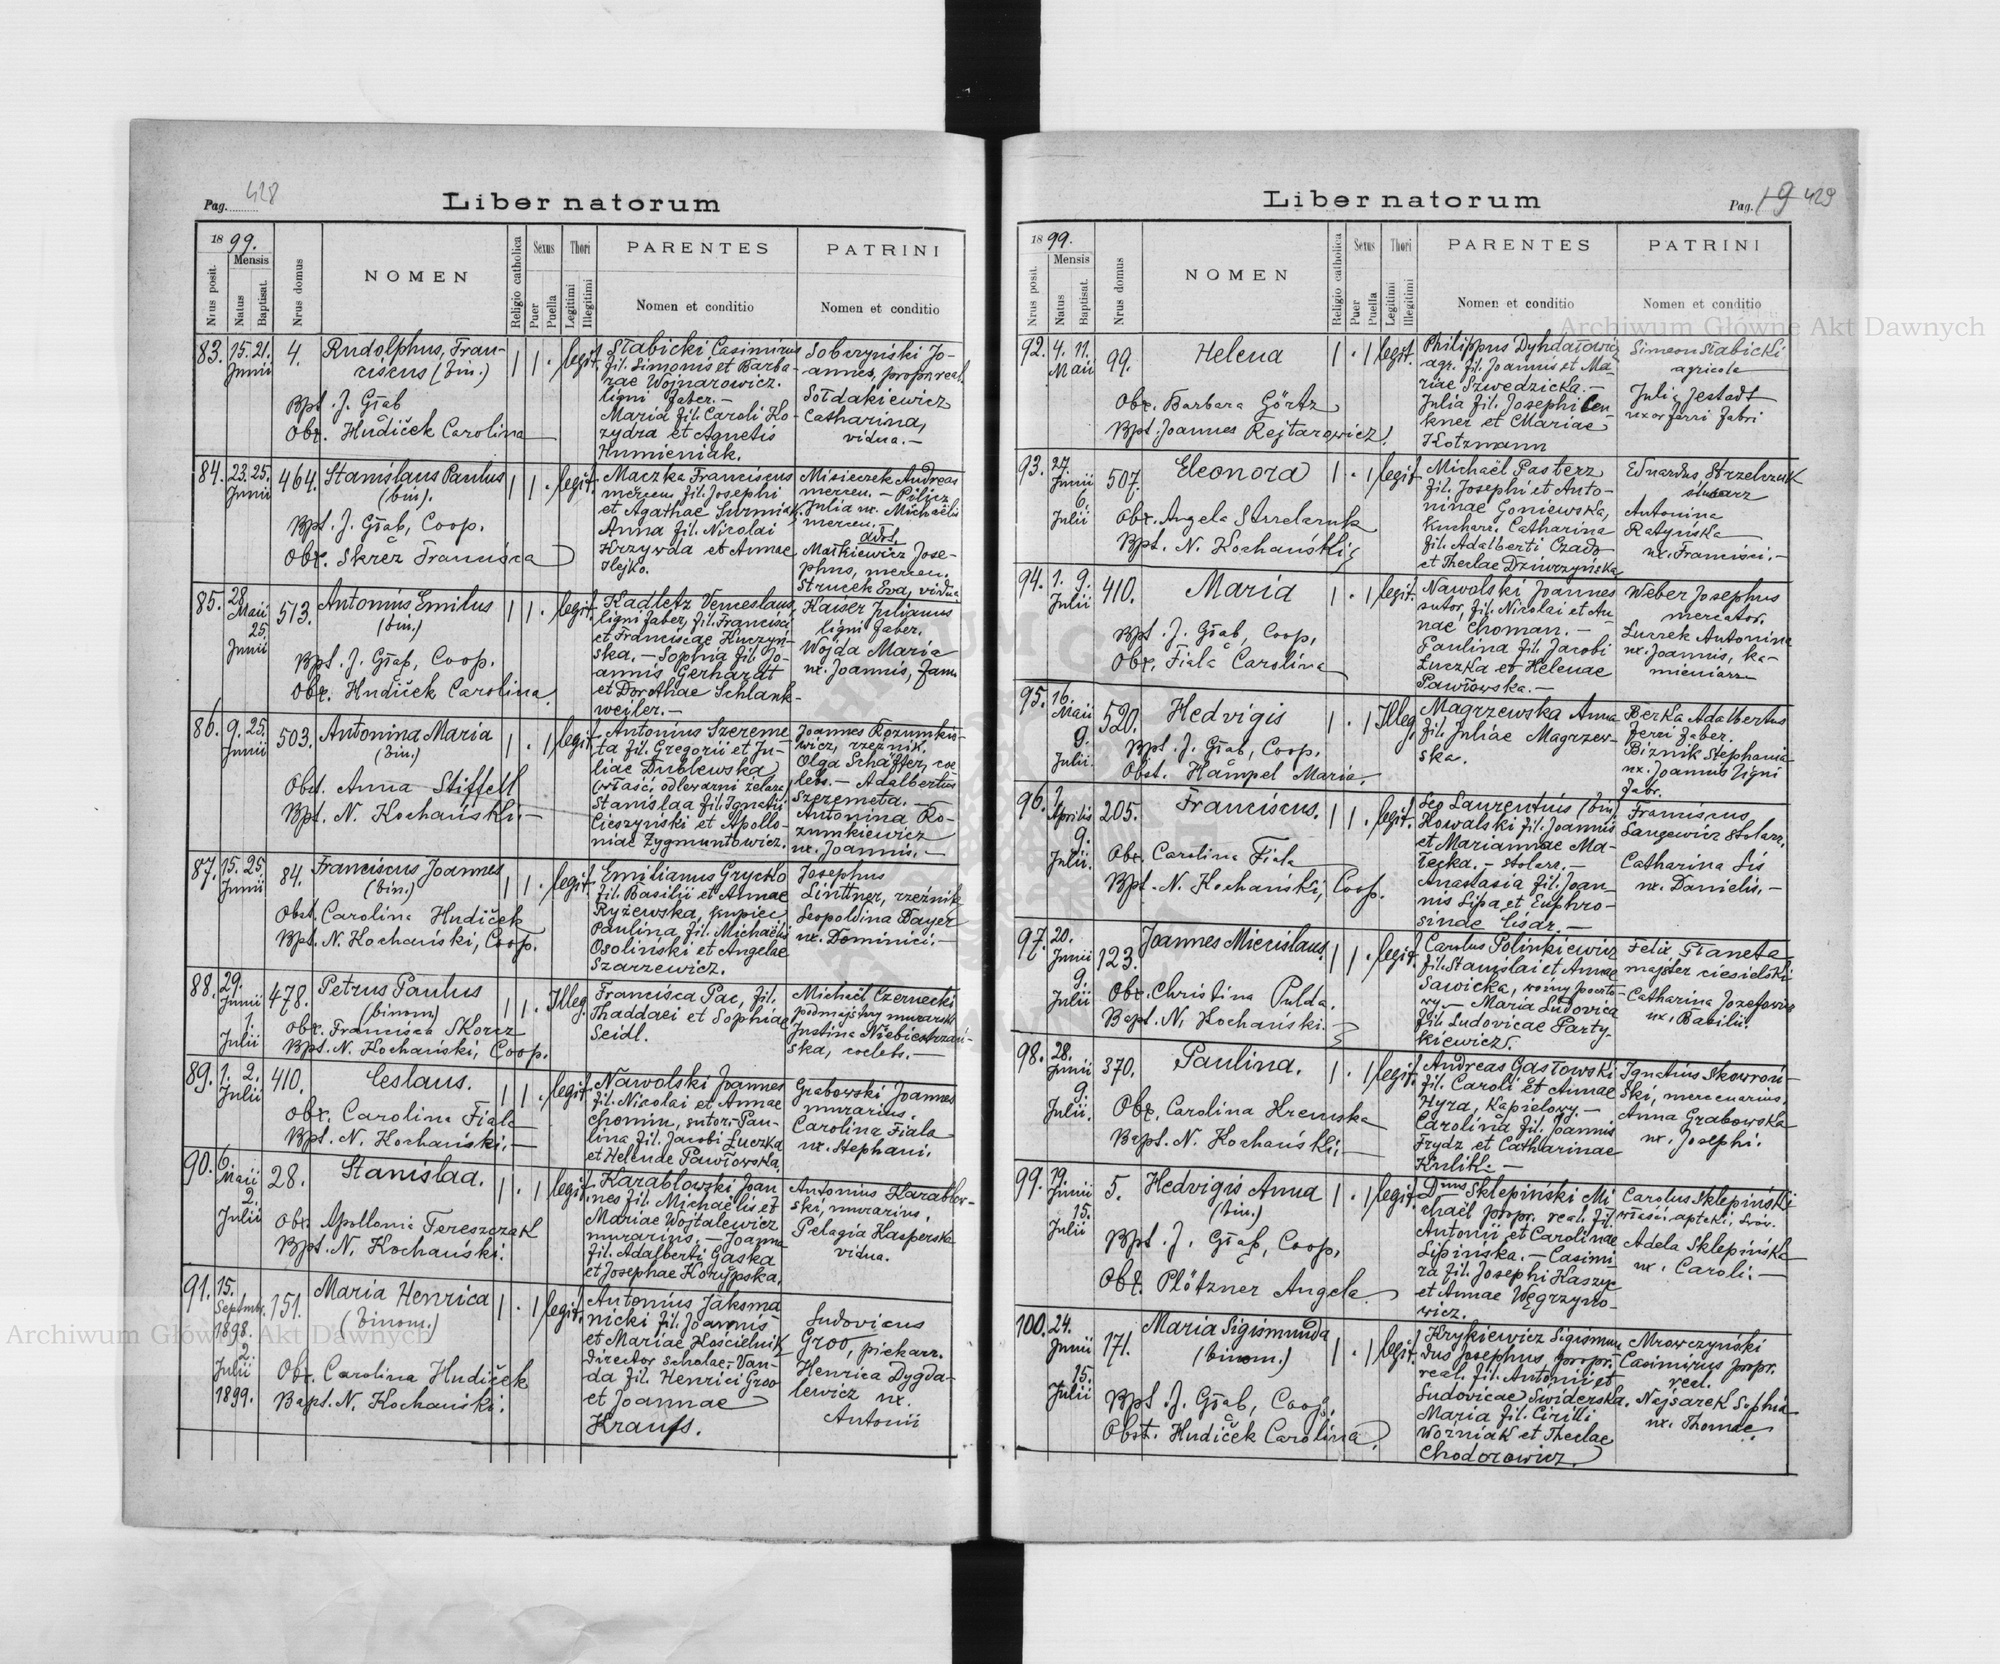 Pag. 428
Liber natorum
1899.
Mensis
Nrus posit.
Natus
Baptisat.
Nrus domus
NOMEN
Religio catholica
Sexus
Puer
Puella
Thori
Legitimi
Illegitimi
PARENTES
Nomen et conditio
PATRINI
Nomen et conditio
83. 15. 21. Junii 4.
Rudolphus, Fran-
ciscus (bin.)
Bpt. J. Głąb
Obx. Hudiček Carolina
1 1 . legit.
Słabicki Casimirus
fil. Simonis et Barba-
rae Wojnarowicz.
ligni faber. —
Maria fil. Caroli Ko-
zydra et Agnetis
Humieniak.
Sobczyński Jo-
annes, propr. real.
Sołdakiewicz
Catharina,
vidua. —
84. 23. 25. Junii 464.
Stanislaus Paulus
(bin).
Bpt. J. Głąb, Coop.
Obx. Skrez Francisca
1 1 . legit.
Maczka Franciscus
mercen. fil. Josephi
et Agathae Surmiak.
Anna fil. Nicolai
Krzywda et Annae
Hejko.
Misiewek Andreas
mercen. — Pilicz
Julia ux. Michaelis
mercen.
Małkiewicz Jose-
phus, mercen.
Strucek Eva, vidua
85. 28. Maii 25. Junii 513.
Antonius Emilus
(bin.)
Bpt. J. Głąb, Coop.
Obx. Hudiček Carolina.
1 1 . legit.
Kadletz Venceslaus,
ligni faber, fil. Francisci
et Franciscae Kuczyń-
ska. — Sophia fil. Jo-
annis Gerhardt
et Dorothae Schlank-
weiler. —
Kaiser Julianus
ligni faber.
Wojda Maria
ux. Joannis, fam.
86. 9. 25. Junii 503.
Antonina Maria
(bin.)
Obst. Anna Stiffell
Bpt. N. Kochański. —
1 . 1 legit.
Antonius Szereme
ta fil. Gregorii et Ju-
liae Dublewska
(właśc. odlewarni żelaza)
Stanislaa fil. Ignatii
Cieszyński et Apollo-
niae Zygmuntowicz.
Joannes Rozumkie-
wicz, rzeźnik.
Olga Schäffer, coe
lebs. — Adalbertus
Szeremeta. —
Antonina Ro-
zumkiewicz
ux. Joannis. —
87. 15. 25. Junii 84.
Franciscus Joannes
(bin.)
Obst. Carolina Hudiček
Bpt. N. Kochański, Coop.
1 1 . legit.
Emilianus Grycko
fil. Basilii et Annae
Ryżewska, kupiec,
Paulina fil. Michaelis
Osoliński et Angelae
Szarzewicz.
Josephus
Linttner, rzeźnik
Leopoldina Bayer
ux. Dominici. —
88. 29. Junii 1 Julii 478.
Petrus Paulus
(binom)
Obx. Francisca Skorcz
Bpt. N. Kochański, Coop.
1 1 . Illeg.
Francisca Pac, fil.
Thaddaei et Sophiae
Seidl.
Michaël Czernecki
podmajstry murarski
Justina Niebieszczań-
ska, coelebs. —
89. 1. 2. Julii 410.
Ceslaus.
Obx. Carolina Fiala
Bpt. N. Kochański. —
1 1 . legit.
Nawolski Joannes
fil. Nicolai et Annae
Chomin, sutor. Pau-
lina fil. Jacobi Łuczka
et Helenae Pawłowska.
Grabowski Joannes
murarius.
Carolina Fiala
ux. Stephani.
90. 6. Maii 2. Julii 28.
Stanislaa.
Obx. Apollonia Tereszczak
Bpt. N. Kochański.
1 . 1 legit.
Karabłowski Joan
nes fil. Michaëlis et
Mariae Wojtalewicz
murarius. — Joanna
fil. Adalberti Gaska
et Josephae Korypska.
Antonius Karabłow-
ski, murarius.
Pelagia Kasperska
vidua.
91. 15. Septmbr. 1898. 2. Julii 1899. 151.
Maria Henrica
(binom.)
Obx. Carolina Hudiček
Bapt. N. Kochański.
1 . 1 legit.
Antonius Jaksma
nicki fil. Joannis
et Mariae Kościelnik
director scholae. Van-
da fil. Henrici Groo
et Joannae
Krauss.
Ludovicus
Groo, piekarz.
Henrica Dygda-
lewicz ux.
Antonii
Liber natorum
Pag. 19 429
1899.
Mensis
Nrus posit.
Natus
Baptisat.
Nrus domus
NOMEN
Religio catholica
Sexus
Puer
Puella
Thori
Legitimi
Illegitimi
PARENTES
Nomen et conditio
PATRINI
Nomen et conditio
92. 4. 11. Maii 99.
Helena
Obx. Barbara Görtz
Bpt. Joannes Rejtarowicz.
1 . 1 legit.
Philippus Dyhdałowicz
agr. fil. Joannis et Ma-
riae Szwedzicka. —
Julia fil. Josephi Cen-
kner et Mariae
Kotzmann
Simeon Słabicki
agricola
Julia Jestadt
uxor ferri fabri
93. 27. Junii 6. Julii 507.
Eleonora
Obx. Angela Strzelczuk
Bpt. N. Kochański;
1 . 1 legit
Michaël Pasterz
fil. Josephi et Anto-
ninae Goniewska,
kucharz. Catharina
fil. Adalberti Czado
et Theclae Dziurzyńska
Eduardus Strzelczuk
ślusarz
Antonina
Ratyńska
ux. Francisci. —
94. 1. 9. Julii 410.
Maria
Bpt. J. Głąb, Coop.
Obx. Fiala Carolina
1 . 1 legit.
Nawolski Joannes
sutor, fil. Nicolai et An-
nae Choman. —
Paulina fil. Jacobi
Łuczka et Helenae
Pawłowska. —
Weber Josephus
mercator.
Lurrek Antonina
ux. Joannis, ka-
mieniarz
95. 16. Maii 9. Julii. 520.
Hedvigis
Bpt. J. Głąb, Coop.
Obst. Hampel Maria.
1 . 1 Illeg.
Magrzewska Anna
fil. Juliae Magrzew-
ska.
Berka Adalbertus
ferri faber.
Biznik Stephania
ux. Joannis ligni
fabr.
96. 2 Aprilis 9. Julii. 205.
Franciscus.
Obx. Carolina Fiala
Bpt. N. Kochański, Coop.
1 1 . legit.
Leo Laurentius (bin)
Kowalski fil. Joannis
et Mariannae Ma-
łecka. — stolarz. —
Anastasia fil. Joan-
nis Lipa et Euphro-
sinae Cisar. —
Franciscus
Langewicz stolarz,
Catharina Lis
ux. Danielis. —
97. 20. Junii 9. Julii 123.
Joannes Miecislaus.
Obx. Christina Pulda.
Bapt. N. Kochański. —
1 1 . legit.
Carolus Polinkiewicz
fil. Stanislai et Annae
Sawicka, woźny poczto-
wy. — Maria Ludovica
fil. Ludovicae Party-
kiewicz.
Felix Planeta
majster ciesielski
Catharina Jozefowicz
ux. Basilii.
98. 28. Junii 9. Julii. 370.
Paulina.
Obx. Carolina Kremska
Bapt. N. Kochański. —
1 . 1 legit.
Andreas Gasłowski
fil. Caroli et Annae
Hyra, kąpielowy. —
Carolina fil. Joannis
Frydz et Catharinae
Kulik. —
Ignatius Skowroń-
ski, mercenarius.
Anna Grabowska
ux. Josephi.
99. 19. Junii 15. Julii 5.
Hedvigis Anna
(bin.)
Bpt. J. Głąb, Coop.
Obx. Plötzner Angela.
1 . 1 legit.
Dnus Sklepiński Mi
chaël propr. real. fil.
Antonii et Carolinae
Lipinska. — Casimi-
ra fil. Josephi Kaszyc
et Annae Węgrzyno-
wicz.
Carolus Sklepiński
właśc. apteki, Lvov.
Adela Sklepińska
ux. Caroli. —
100. 24. Junii 15. Julii 171.
Maria Sigismunda
(binom.)
Bpt. J. Głąb, Coop.
Obst. Hudiček Carolina.
1 . 1 legit.
Krykiewicz Sigismun
dus Josephus propr.
real. fil. Antonii et
Ludovicae Swiderska.
Maria fil. Cirilli
Woźniak et Theclae
Chodorowicz.
Mrowczyński
Casimirus propr.
real.
Najsarek Sophia
ux. Thomae.
Archiwum Główne Akt Dawnych
Archiwum Główne Akt Dawnych